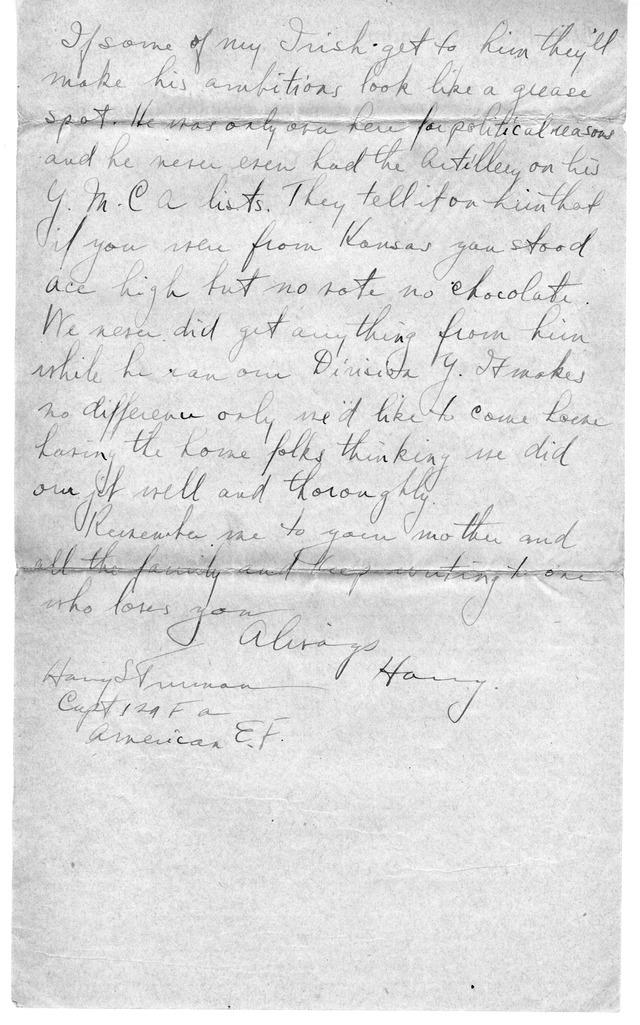 If some of my Irish get to him they'll
make his ambitions look like a grease
spot. He was only over here for political reasons
and he never even had the Artillery on his
Y. M. C A lists. They tell it on him that
if you were from Kansas you stood
ace high but no vote no chocolate.
We never did get anything from him
while he ran our Division Y. It makes
no difference only we'd like to come home
having the home folks thinking we did
our jt well and thoroughly.
Remember me to your mother and
all the family and keep writing to one
who loves you
Always
Harry.
Harry S Truman
Capt 129 F a
American E.F.